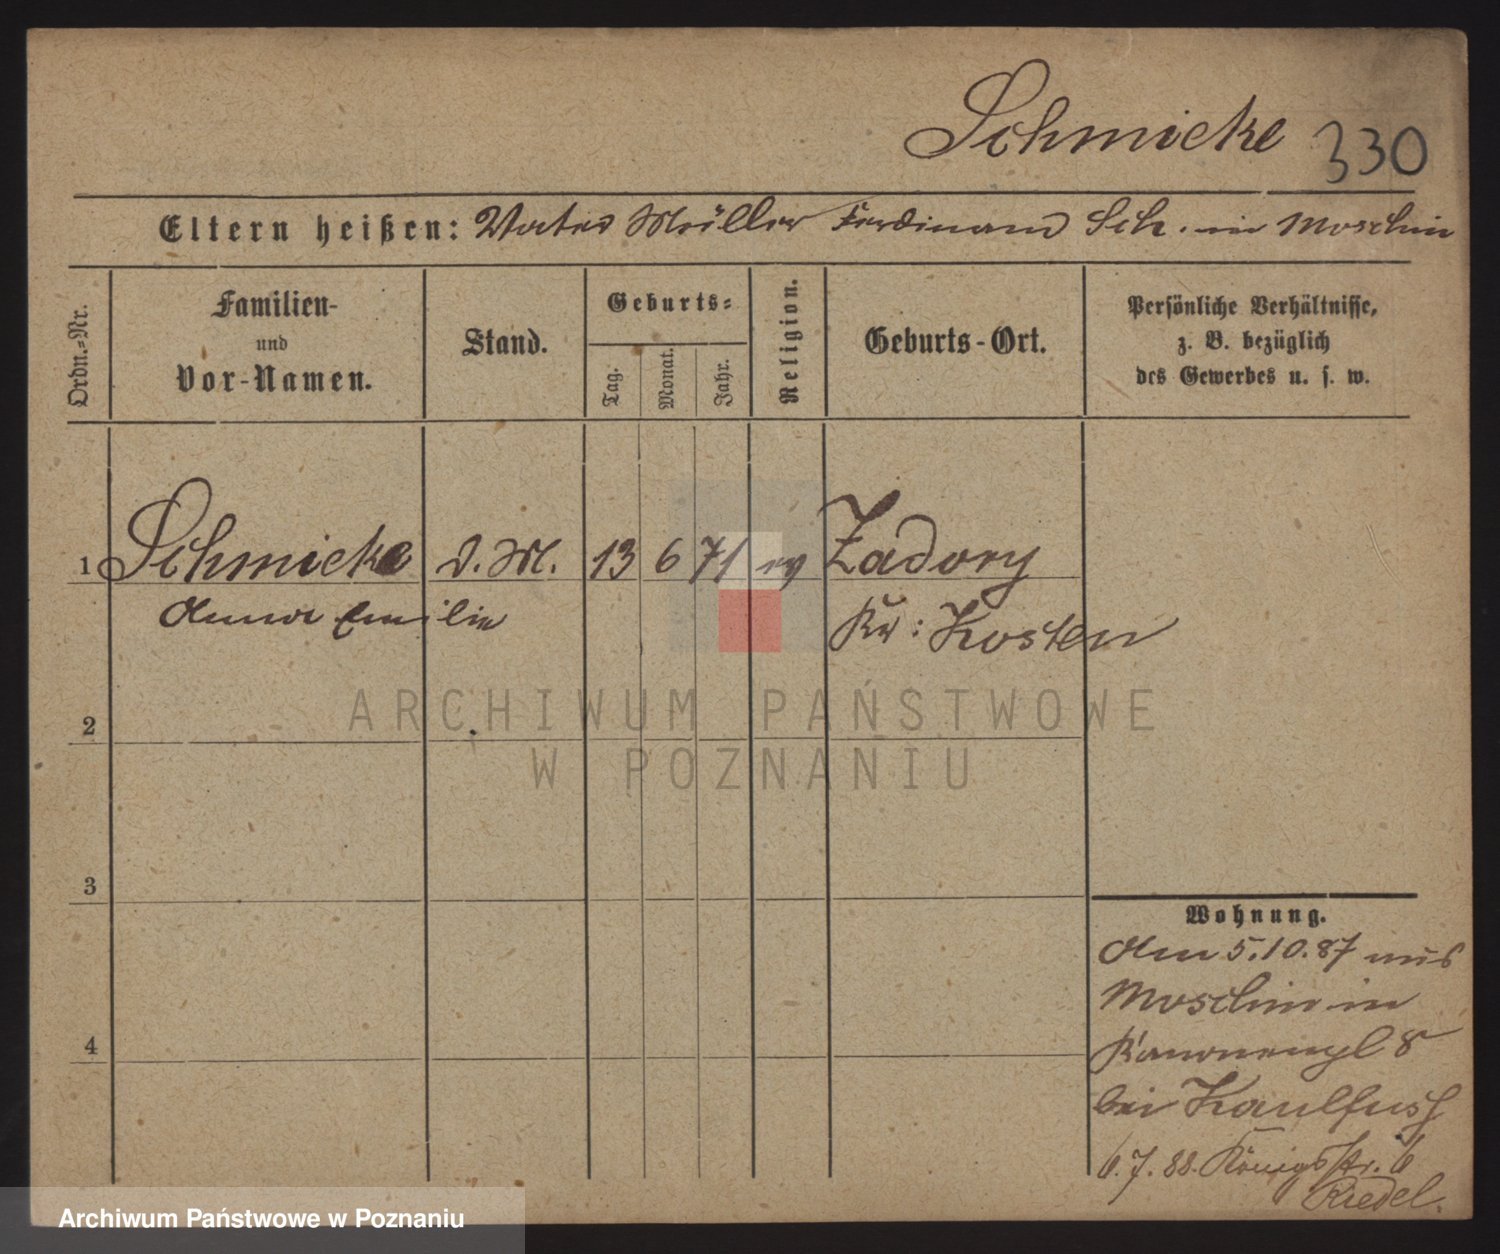 Schmicke 330
Eltern heißen: Vater Müller Ferdinand Sch. in Moschin
Ordn.-Nr.
Familien-
und
Vor-Namen.
Stand.
Geburts-
Tag.
Monat.
Jahr.
Religion.
Geburts-Ort.
Persönliche Verhältnisse,
z. B. bezüglich
des Gewerbes u. s. w.
1 Schmicke D. M. 13 6 71 ev Zadory
Anna Emilie Kr: Kosten
2
3
4
Wohnung.
Am 5.10.87 aus
Moschin in
Kanonenpl 8
bei Kaulfuss
6.7.88. Königsstr. 6
Riedel.
ARCHIWUM PAŃSTWOWE
W POZNANIU
Archiwum Państwowe w Poznaniu